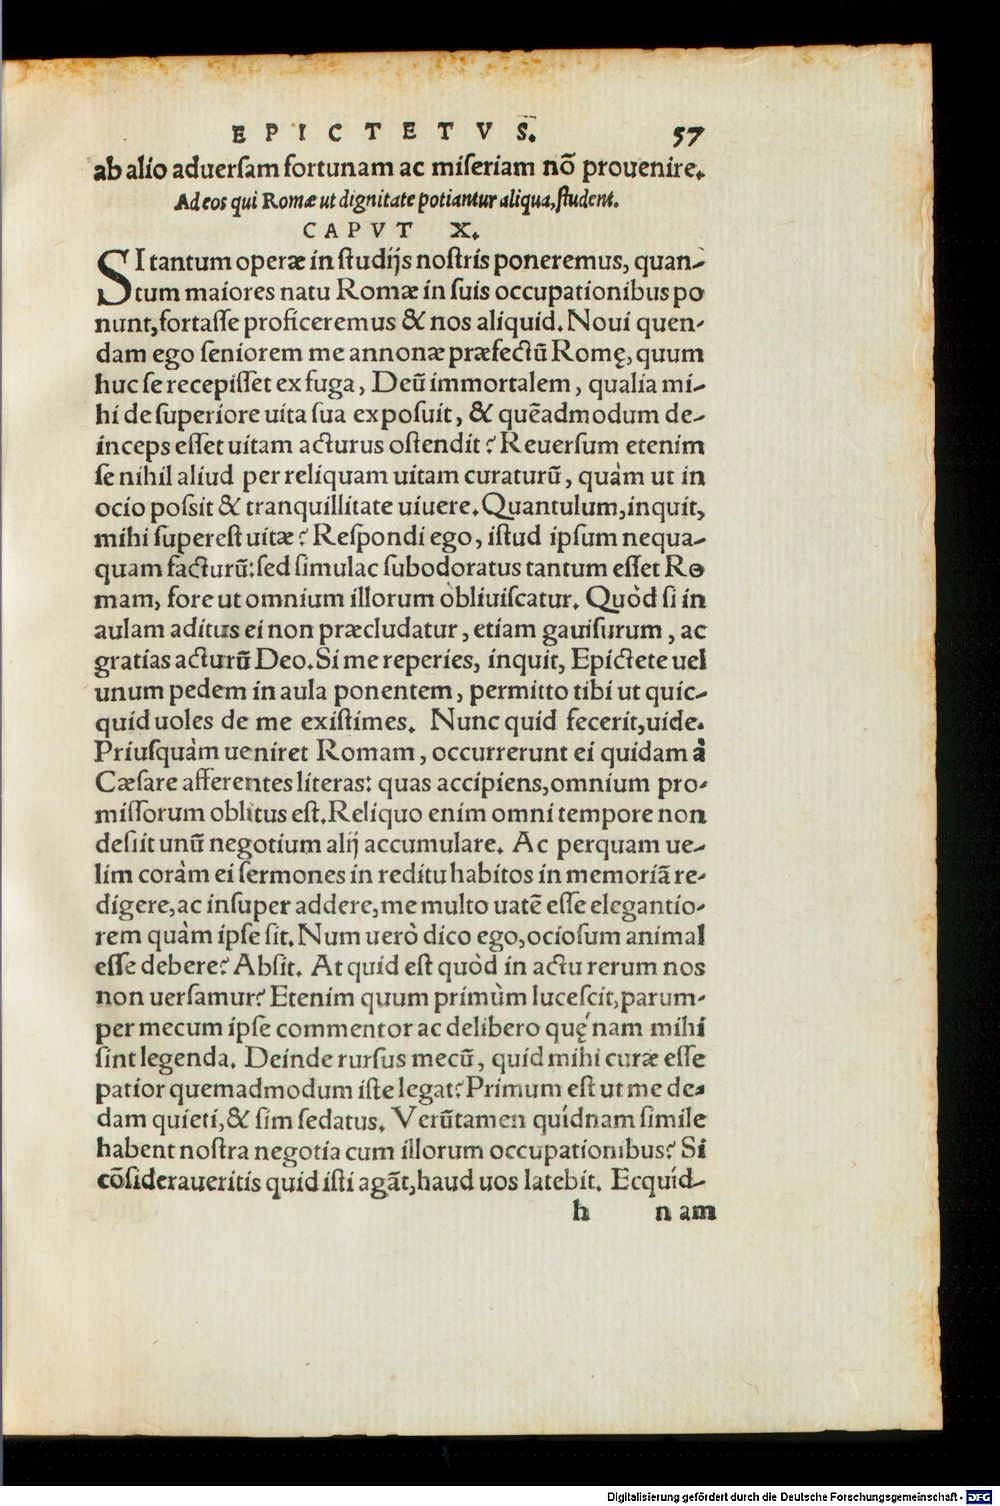 EPICTETVS. 57
ab alio aduersam fortunam ac miseriam nõ prouenire.
Ad eos qui Romæ ut dignitate potiantur aliqua, student.
CAPVT X.
SI tantum operæ in studijs nostris poneremus, quan-
tum maiores natu Romæ in suis occupationibus po
nunt, fortasse proficeremus & nos aliquid. Noui quen-
dam ego seniorem me annonæ præfectũ Romę, quum
huc se recepisset ex fuga, Deũ immortalem, qualia mi-
hi de superiore uita sua exposuit, & quẽadmodum de-
inceps esset uitam acturus ostendit? Reuersum etenim
se nihil aliud per reliquam uitam curaturũ, quàm ut in
ocio possit & tranquillitate uiuere. Quantulum, inquit,
mihi superest uitæ? Respondi ego, istud ipsum nequa-
quam facturũ: sed simulac subodoratus tantum esset Ro
mam, fore ut omnium illorum òbliuiscatur. Quòd si in
aulam aditus ei non præcludatur, etiam gauisurum, ac
gratias acturũ Deo. Si me reperies, inquit, Epictete uel
unum pedem in aula ponentem, permitto tibi ut quic-
quid uoles de me existimes. Nunc quid fecerit, uide.
Priusquàm ueniret Romam, occurrerunt ei quidam à
Cæsare afferentes literas: quas accipiens, omnium pro-
missorum oblitus est. Reliquo enim omni tempore non
desiit unũ negotium alij accumulare. Ac perquam ue-
lim coràm ei sermones in reditu habitos in memoriã re-
digere, ac insuper addere, me multo uatẽ esse elegantio-
rem quàm ipse sit. Num uerò dico ego, ociosum animal
esse debere? Absit. At quid est quòd in actu rerum nos
non uersamur? Etenim quum primùm lucescit, parum-
per mecum ipse commentor ac delibero quę nam mihi
sint legenda. Deinde rursus mecũ, quid mihi curæ esse
patior quemadmodum iste legat? Primum est ut me de-
dam quieti, & sim sedatus. Verũtamen quidnam simile
habent nostra negotia cum illorum occupationibus? Si
cõsideraueritis quid isti agãt, haud uos latebit. Ecquid-
h nam
Digitalisierung gefördert durch die Deutsche Forschungsgemeinschaft - DFG